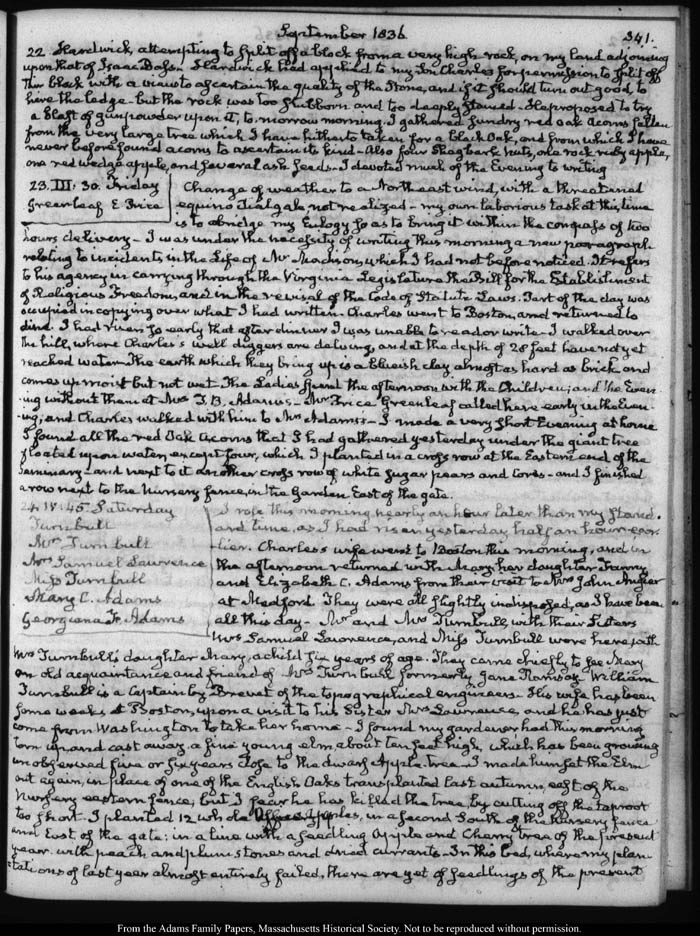 September 1836
341.
22 Hardwick, attempting to split off a block from a very high rock, on my land adjoining
upon that of Isaac Bass. Hardwick had applied to my Son Charles for permission to split off
this block with a view to ascertain the quality of the Stone, and if it should turn out good, to
hire the ledge. but the rock was too stubborn and too deeply Stowed. He proposed to try
a blast of gunpowder upon it, to-morrow morning. I gathered sundry red oak acorns fallen
from the very large tree which I have hitherto taken for a black Oak, and from which I have
never before found acorns to ascertain its kind. Also four Shagbark nuts, one rock apple,
one red wedge apple, and several ash seeds. I devoted much of the Evening to writing
23. III: 30. Friday
Greenleaf E. Price
Change of weather to a North east wind, with a threatened
equinoctial gale not realized. my own laborious task at this time
is to abridge my Eulogy so as to bring it within the compass of two
hours delivery. I was under the necessity of writing this morning a new paragraph
relating to incidents in the Life of Mr Madison, which I had not before noticed. It refers
to his agency in carrying through the Virginia Legislature the Bill for the Establishment
of Religious Freedom, and in the revisal of the Code of Statute Laws. Part of the day was
occupied in copying over what I had written. Charles went to Boston, and returned to
dine. I had risen so early that after dinner I was unable to read or write. I walked over
the hill, where Charles's well diggers are delving, and at the depth of 28 feet have not yet
reached water. The earth which they bring up is a blueish clay almost as hard as brick, and
comes up moist but not wet. The Ladies spent the afternoon with the Children; and the Even-
ing without them at Mrs T. B. Adams's. Mr Price Greenleaf called here early in the Even-
ing; and Charles walked with him to Mrs Adams's. I made a very short Evening at home
I found all the red Oak Acorns that I had gathered yesterday under the giant tree
floated upon water, except four, which I planted in a cross row at the Eastern end of the
Seminary. and next to it another cross row of white sugar pears and cores. and I finished
a row next to the Nursery fence, in the Garden East of the gate.
24. IV: 45. Saturday
Turnbull
Mrs Turnbull
Mrs Samuel Lawrence
Miss Turnbull
Mary C. Adams
Georgiana F. Adams
I rose this morning nearly an hour later than my stand-
ard time, as I had risen yesterday half an hour ear-
lier. Charles's wife went to Boston this morning, and in
the afternoon returned with Mary, her daughter Fanny
and Elizabeth C. Adams from their visit to Mrs John Angier
at Medford. They were all slightly indisposed, as I have been
all this day. Mr and Mrs Turnbull, with their Sisters
Mrs Samuel Lawrence, and Miss Turnbull were here, with
Mrs Turnbull's daughter Mary, a child six years of age. They came chiefly to see Mary
an old acquaintance and friend of Mrs Turnbull formerly Jane Ramsay. William
Turnbull is a Captain by Brevet of the topographical engineers. His wife has been
some weeks at Boston, upon a visit to his Sister Mrs Lawrence, and he has just
come from Washington to take her home. I found my gardener had this morning
torn up and cast away a fine young elm, about ten feet high, which has been growing
unobserved five or six years close to the dwarf Apple tree. I made him set the Elm
out again, in place of one of the English Oaks transplanted last autumn, east of the
Nursery eastern fence, but I fear he has killed the tree, by cutting off the taproot
too short. I planted 12 whole Apples, in a second South of the Nursery fence
and East of the gate: in a line with a seedling Apple and Cherry tree of the present
year. with peach and plum stones and dried currants. In this bed, where my plan-
tations of last year almost entirely failed, there are yet of seedlings of the present
From the Adams Family Papers, Massachusetts Historical Society. Not to be reproduced without permission.